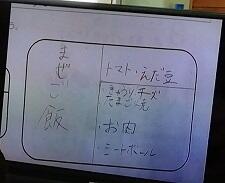 まぜご飯
トマト・えだ豆
きゅうり チーズ
たまご焼
・お肉
・ミートボール